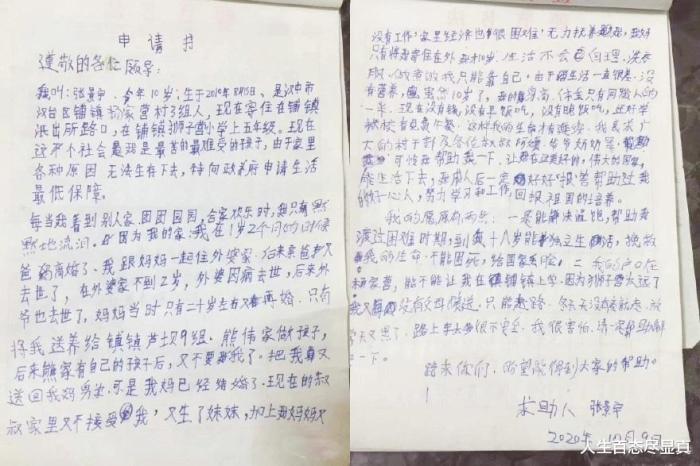 申请书
尊敬的各位领导:
我叫:张景宇、今年10岁:生于2010年8月15日、是汉中市
汉台区铺镇 家营村3组人,现在寄住在铺镇
派出所路口,在铺镇狮子 小学上五年级。现在
这个社会是 最苦的最难受的孩子,由于家里
各种原因 无法生存下去,特向政府申请生活
最低保障。
每当我看到别人家团团圆圆,合家欢乐时、我只有默
默地流泪。因为我的家:我在1岁2个月的时候
爸妈离婚了、我跟妈妈一起住外婆家、后来亲爸爸又
去世了,在外婆家不到2岁,外婆因病去世,后来外
爷也去世了,妈妈当时只有二十岁左右又再婚、只有
将我送养给镇镇芦坝9组、熊伟家做孩子,
后来熊家有自己的孩子后,又不要我了、把我又
送回我妈身边、可是我妈已经结婚了、现在的叔
叔家里又不接受我,又生了妹妹,加上妈妈又
没有工作,家里经济也很困难,无力抚养我,妈妈
只有将我寄住在外 10岁、生活不会自理、洗衣
服、 我只能靠自己,由于生活一直很差、没
有营养, 10岁了, 身高、体重只有同龄人的
一半、现在没有钱,没有早饭吃,没有晚饭吃, 好学
校有免费午餐、这样我的生命才有延续、我恳求广
大的村干部及各位叔叔阿姨、爷爷奶奶
可怜 帮助我一下、让我在这美好的,伟大的国家,
能生活下去, 人后一定好好报答帮助过我
的好心人,努力学习和工作,回报祖国的培养。
我的愿原有两点:一是能解决温饱,帮助我
渡过困难时期,到我十八岁能独立生活,挽救
我的生命、不能困死,给国家丢脸、二、我的户口在
家营,能不能让我在铺镇上学、因为狮子 太远了
我又没有父母接送、只能走路、冬天
天又黑了、路上车太多很不安全、我很害怕、请 帮助解
一下。
跪求你们,盼望能得到大家的帮助。
求助人 张景宇
2020年12月9日
人生百态尽显真